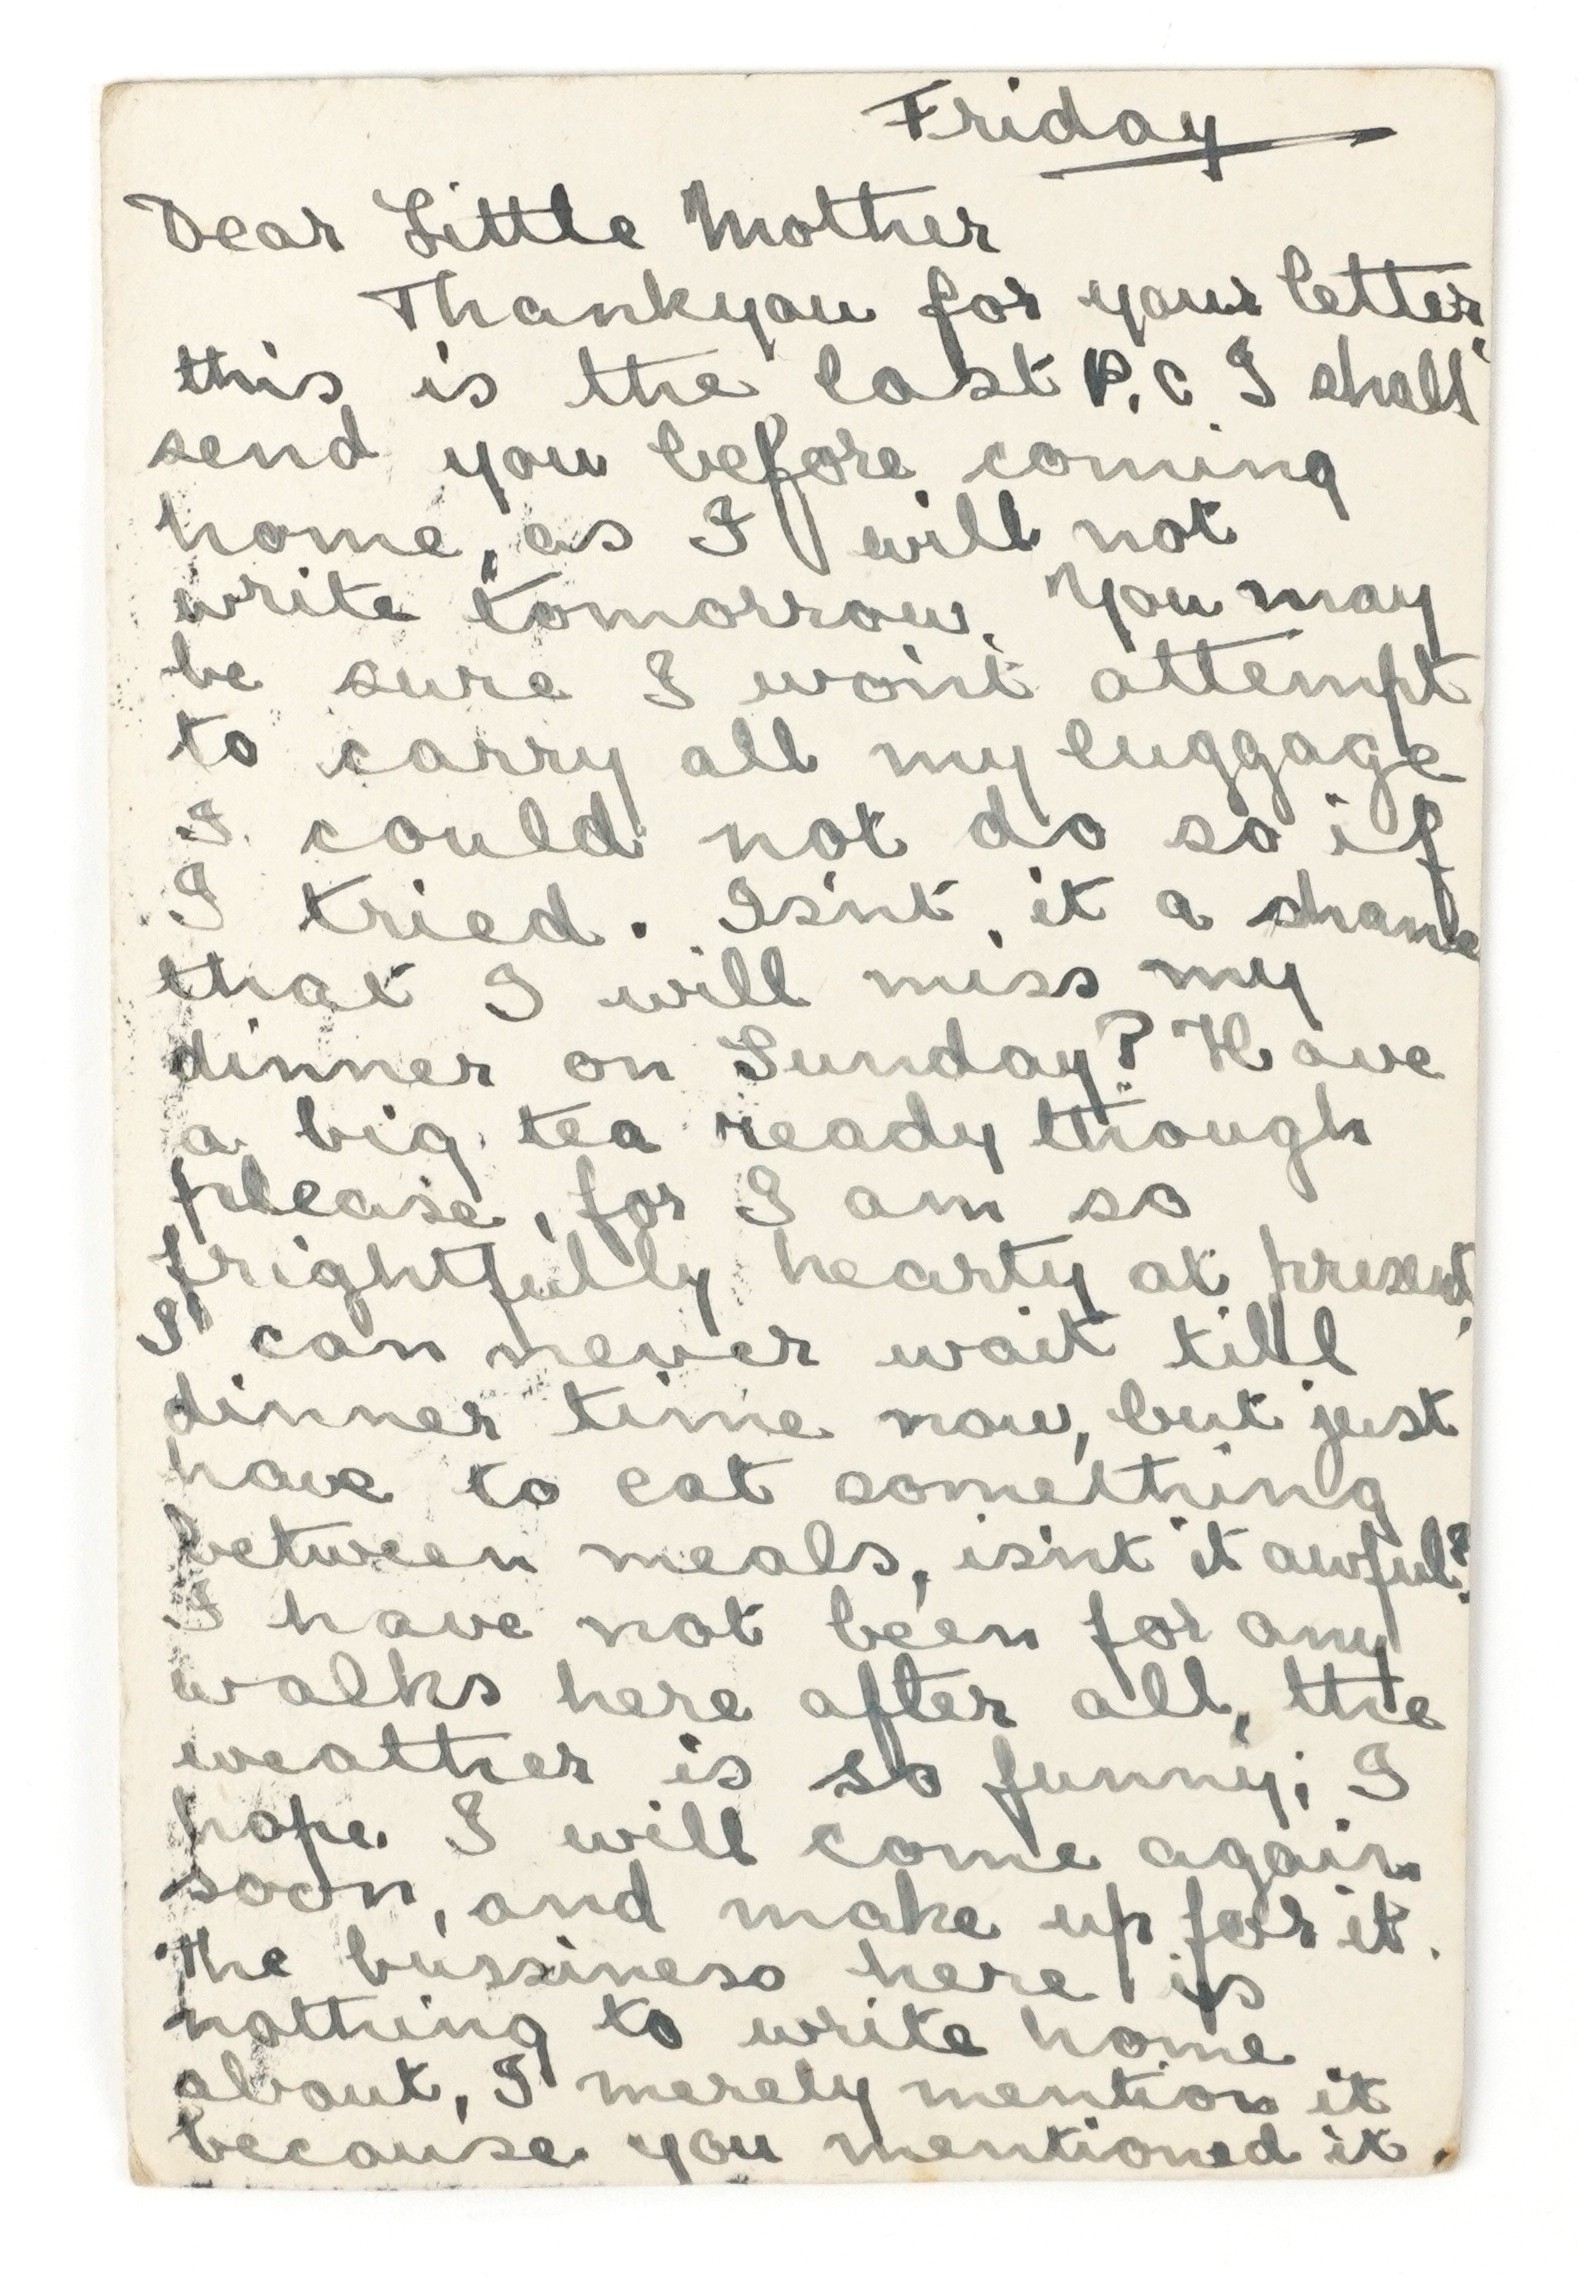 Friday
Dear Little Mother
Thankyou for your letter,
this is the last P.C I shall
send you before coming
home, as I will not
write tomorrow. You may
be sure I won't attempt
to carry all my luggage
I could not do so if
I tried. Isn't it a shame
that I will miss my
dinner on Sunday? Have
a big tea ready though
please, for I am so
frightfully hearty at present,
I can never wait till
dinner time now, but just
have to eat something
between meals, isn't it awful?
I have not been for any
walks here after all, the
weather is so funny; I
hope I will come again
soon, and make up for it.
The bussiness here is
nothing to write home
about, I merely mention it
because you mentioned it.